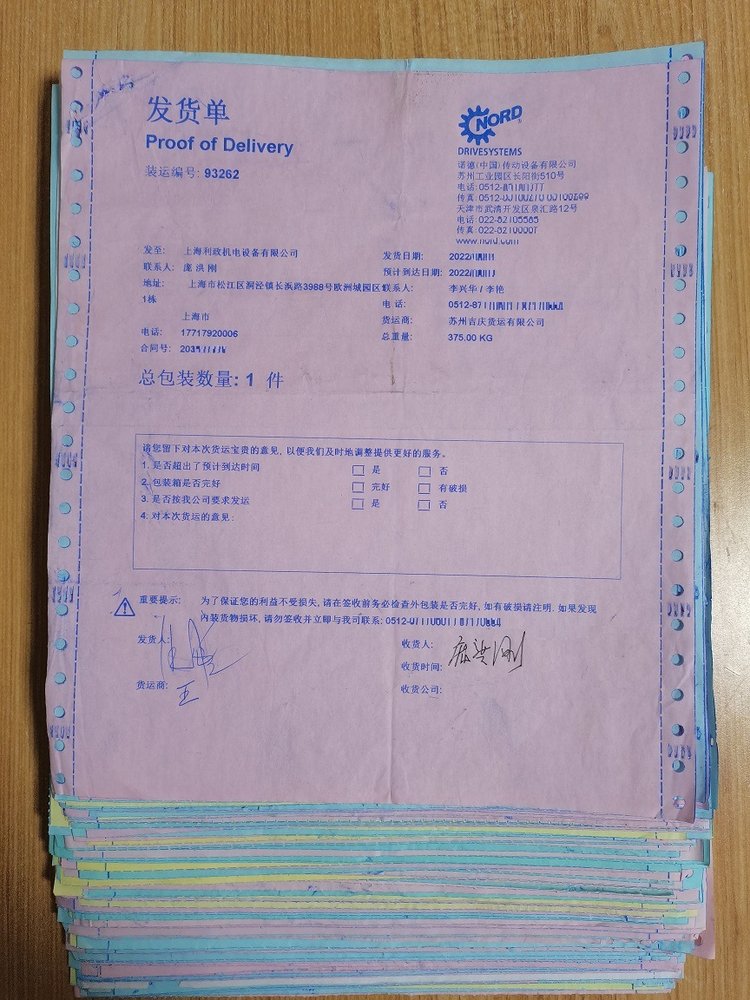 发货单
Proof of Delivery
装运编号: 93262
NORD
DRIVESYSTEMS
诺德(中国)传动设备有限公司
苏州工业园区长阳街510号
电话: 0512-
传真: 0512-
天津市武清开发区泉汇路12号
电话: 022-82105585
传真: 022-
www.nord.com
发至: 上海利政机电设备有限公司
联系人: 庞洪刚
地址: 上海市松江区洞泾镇长浜路3988号欧洲城园区
1栋
上海市
电话: 17717920006
合同号:
发货日期: 2022
预计到达日期: 2022
联系人: 李兴华 / 李艳
电 话: 0512-87
货运商: 苏州吉庆货运有限公司
总重量: 375.00 KG
总包装数量: 1 件
请您留下对本次货运宝贵的意见, 以便我们及时地调整提供更好的服务。
1. 是否超出了预计到达时间 是 否
2. 包装箱是否完好 完好 有破损
3. 是否按我公司要求发运 是 否
4. 对本次货运的意见:
重要提示: 为了保证您的利益不受损失, 请在签收前务必检查外包装是否完好, 如有破损请注明. 如果发现
内装货物损坏, 请勿签收并立即与我司联系: 0512-
发货人:
货运商: 王
收货人: 庞洪刚
收货时间:
收货公司: